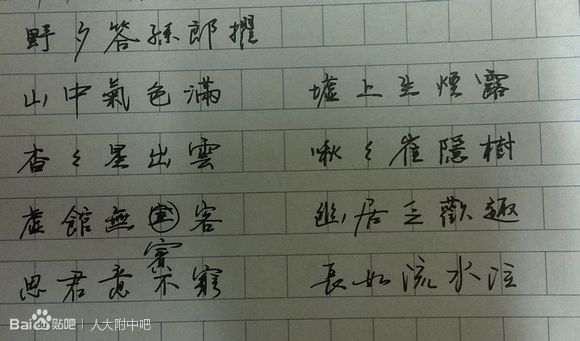 野夕答孫郎擢
山中氣色滿 墟上生煙露
杳々星出雲 啾々雀隱樹
虛館無賓客 幽居乏歡趣
思君意不窮 長如流水注
Baidu贴吧 | 人大附中吧